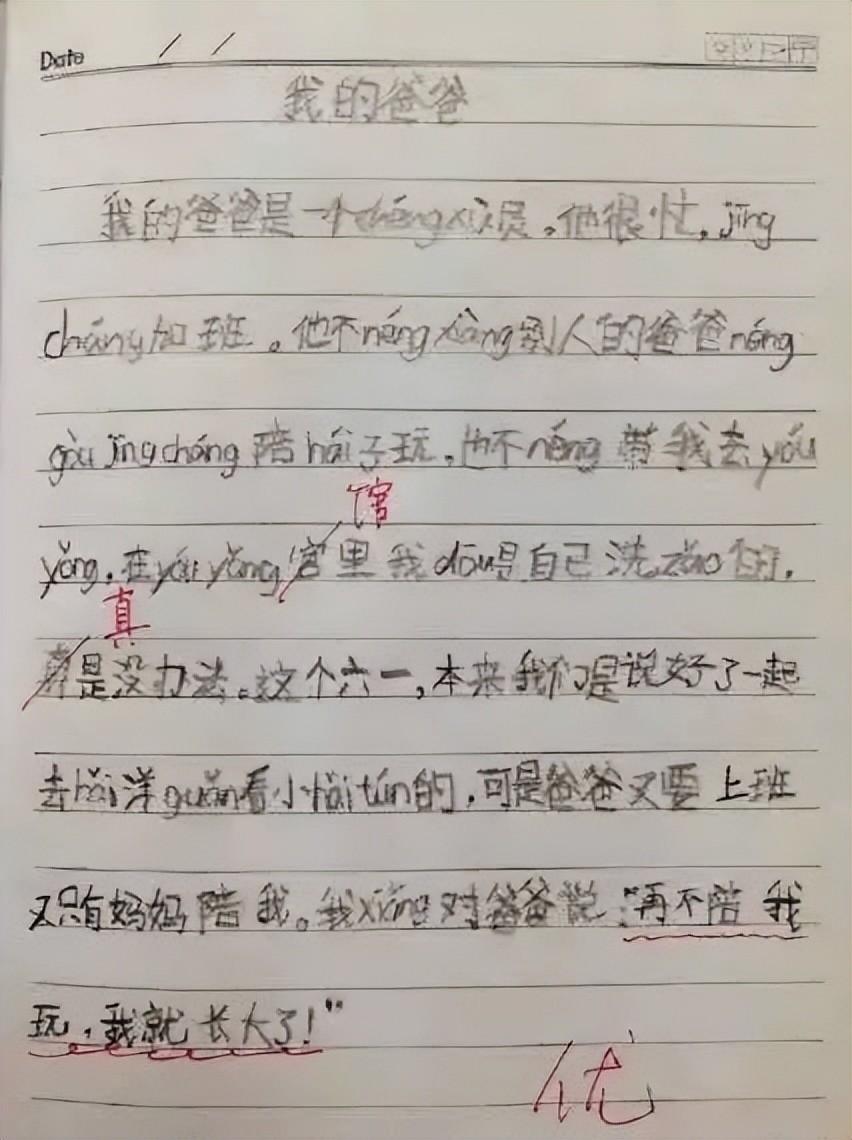 Date / /
我的爸爸
我的爸爸是一个chéngxù员。他很忙,jīng
cháng加班。他不néng xiàng别人的爸爸néng
gòu jīng cháng陪hái子玩,也不néng带我去yóu
馆
yǒng,在yóu yǒng宫里我dōu是自己洗zǎo的,
真
是没办法。这个六一,本来我们是说好了一起
去hǎi洋guǎn看小hǎi tún的,可是爸爸又要上班
又只有妈妈陪我。我xiǎng对爸爸说:"再不陪我
玩,我就长大了!"
优